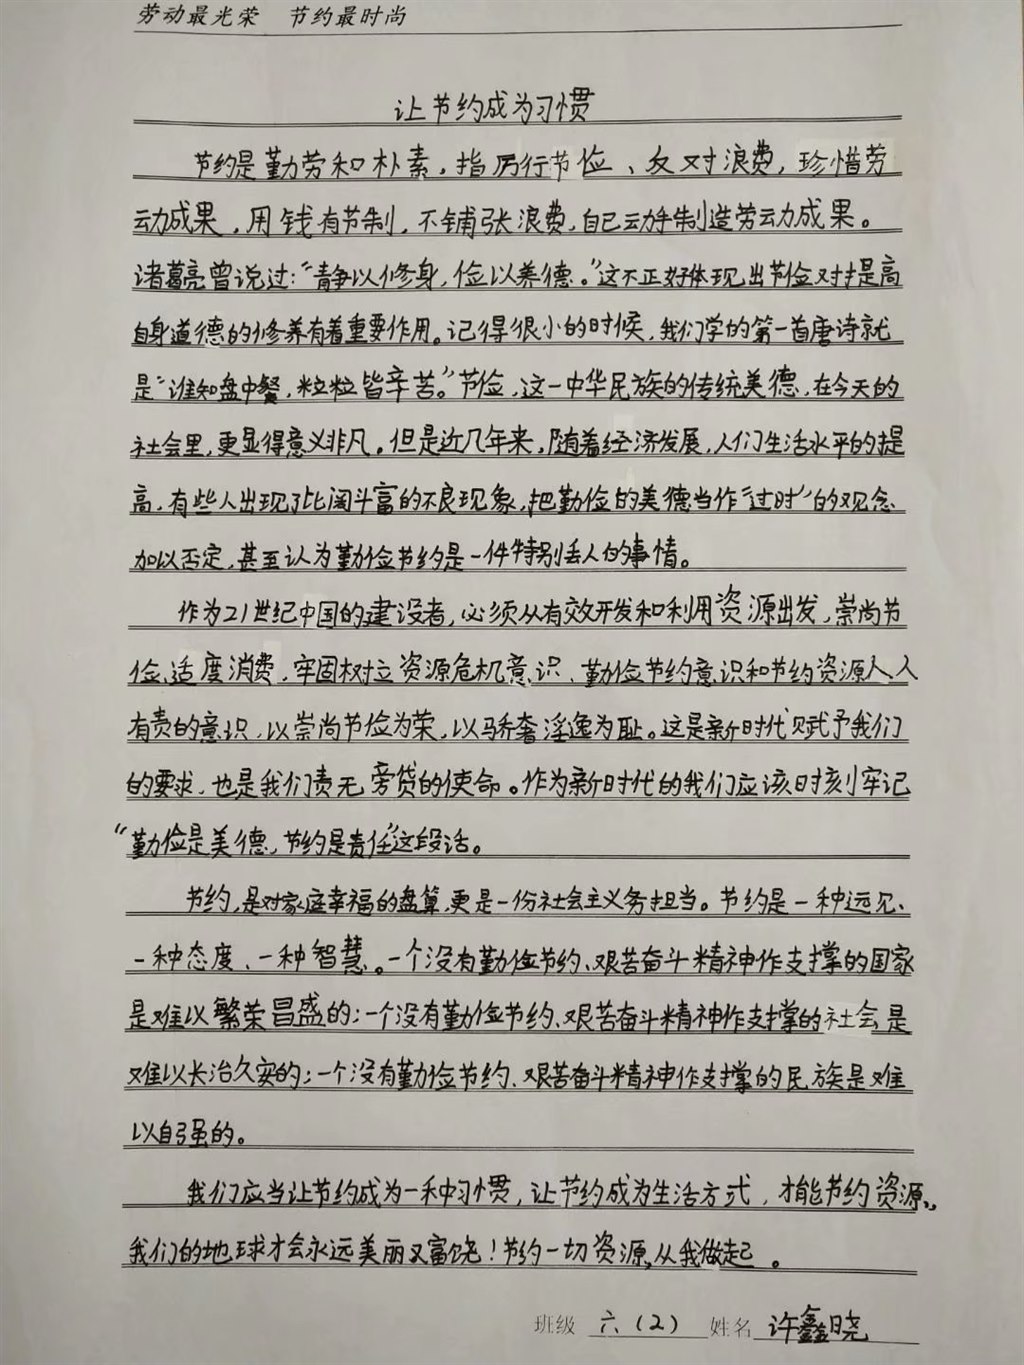 劳动最光荣 节约最时尚
让节约成为习惯
节约是勤劳和朴素。指厉行节俭、反对浪费，珍惜劳
动成果，用钱有节制，不铺张浪费，自己动手制造劳动成果。
诸葛亮曾说过：“静以修身，俭以养德。”这不正好体现出节俭对提高
自身道德的修养有着重要作用。记得很小的时候，我们学的第一首唐诗就
是“谁知盘中餐，粒粒皆辛苦。”节俭，这一中华民族的传统美德，在今天的
社会里，更显得意义非凡。但是近几年来，随着经济发展，人们生活水平的提
高，有些人出现了比阔斗富的不良现象，把勤俭的美德当作“过时”的观念
加以否定，甚至认为勤俭节约是一件特别丢人的事情。
作为21世纪中国的建设者，必须从有效开发和利用资源出发，崇尚节
俭、适度消费，牢固树立资源危机意识、勤俭节约意识和节约资源人人
有责的意识，以崇尚节俭为荣，以骄奢淫逸为耻。这是新时代赋予我们
的要求，也是我们责无旁贷的使命。作为新时代的我们应该时刻牢记
“勤俭是美德，节约是责任”这段话。
节约，是对家庭幸福的盘算，更是一份社会主义务担当。节约是一种远见、
一种态度、一种智慧。一个没有勤俭节约、艰苦奋斗精神作支撑的国家
是难以繁荣昌盛的；一个没有勤俭节约、艰苦奋斗精神作支撑的社会是
难以长治久安的；一个没有勤俭节约、艰苦奋斗精神作支撑的民族是难
以自强的。
我们应当让节约成为一种习惯，让节约成为生活方式，才能节约资源，
我们的地球才会永远美丽又富饶！节约一切资源，从我做起。
班级 六（2） 姓名 许鑫晓